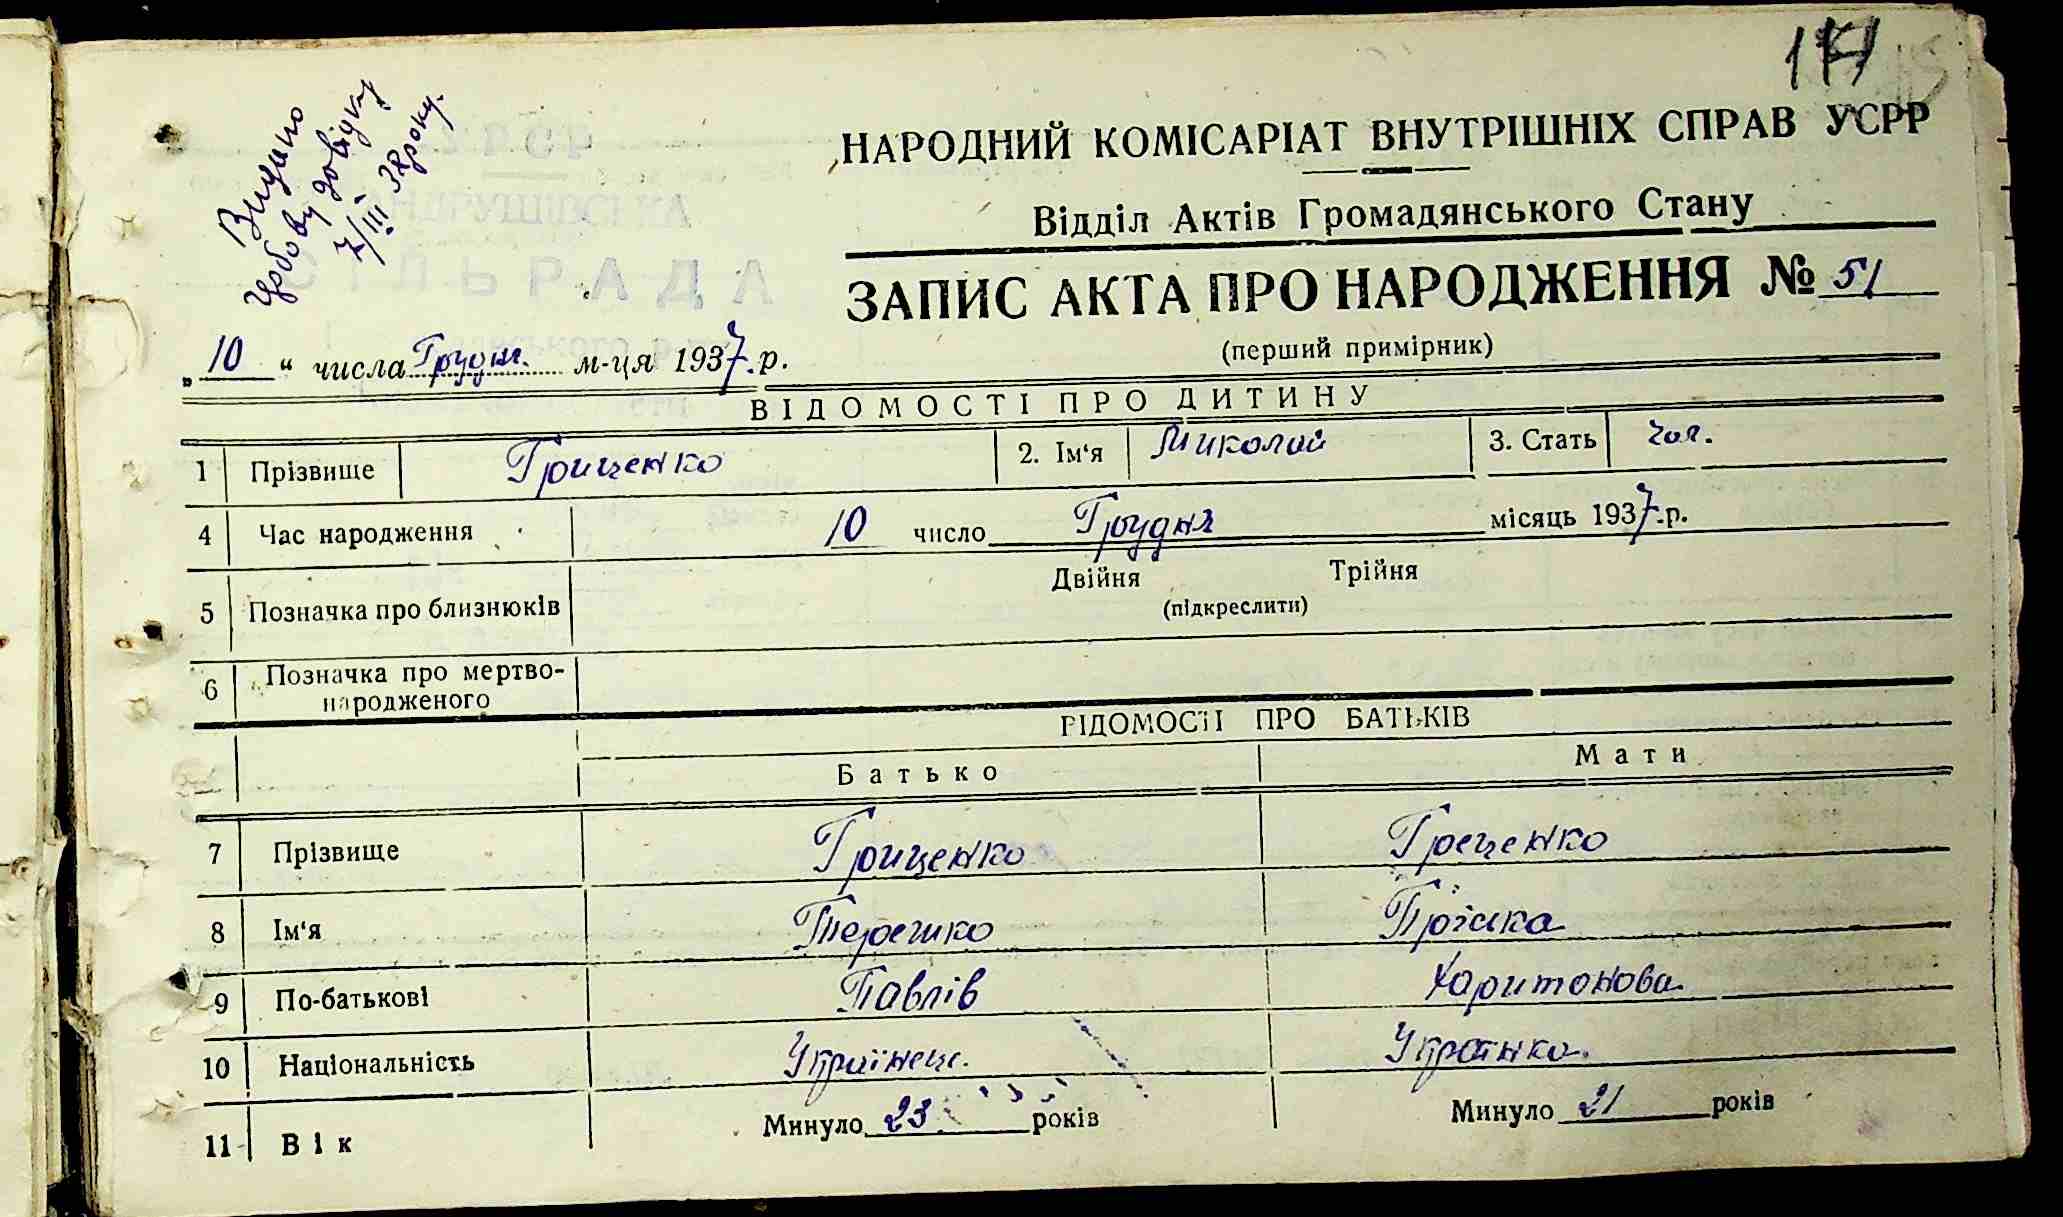 Видано
7/III 38 року.
НАРОДНИЙ КОМІСАРІАТ ВНУТРІШНІХ СПРАВ УСРР
Відділ Актів Громадянського Стану
ЗАПИС АКТА ПРО НАРОДЖЕННЯ № 51
(перший примірник)
„ 10 “ числа Грудня м-ця 1937 р.
ВІДОМОСТІ ПРО ДИТИНУ
1 Прізвище Грищенко 2. Ім'я Миколай 3. Стать чол.
4 Час народження 10 число Грудня місяць 1937 .р.
5 Позначка про близнюків Двійня Трійня
(підкреслити)
6 Позначка про мертво-
народженого
ВІДОМОСТІ ПРО БАТЬКІВ
Батько Мати
7 Прізвище Грищенко Грещенко
8 Ім'я Терешко
9 По-батькові Павлів Харитонова
10 Національність Українець. Українка.
11 Вік Минуло 23 років Минуло 21 років